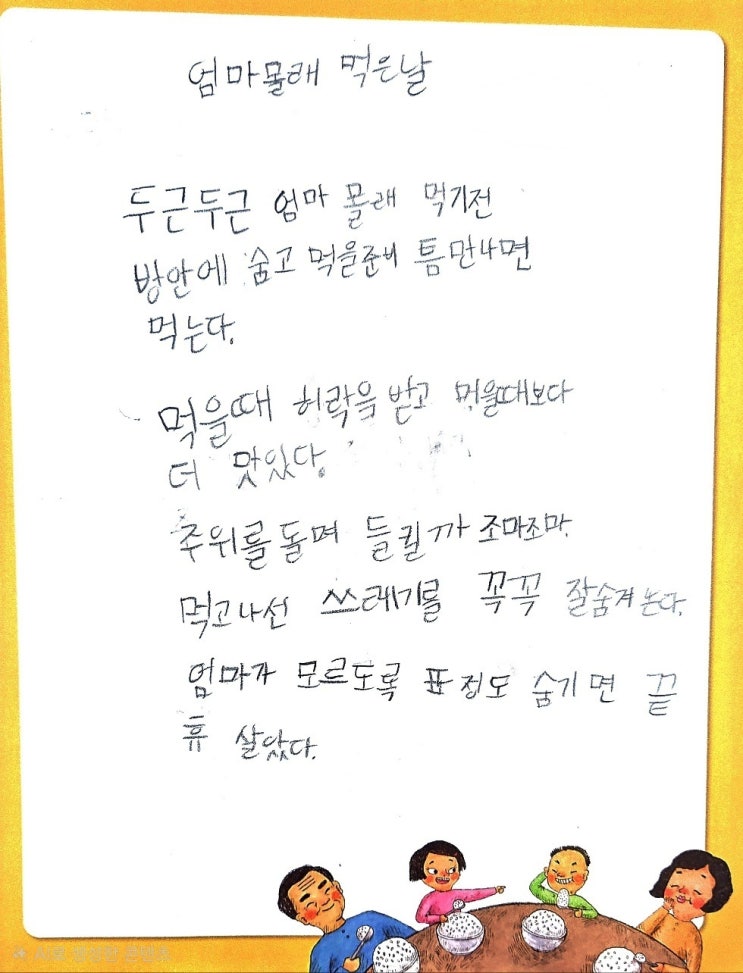 엄마몰래 먹은날
두근두근 엄마 몰래 먹기전
방안에 숨고 먹을준비 틈만나면
먹는다.
먹을때 허락을 받고 먹을때보다
더 맛있다.
주위를 돌며 들킬까 조마조마.
먹고나선 쓰레기를 꼭꼭 잘숨겨 논다.
엄마가 모르도록 표정도 숨기면 끝
휴 살았다.